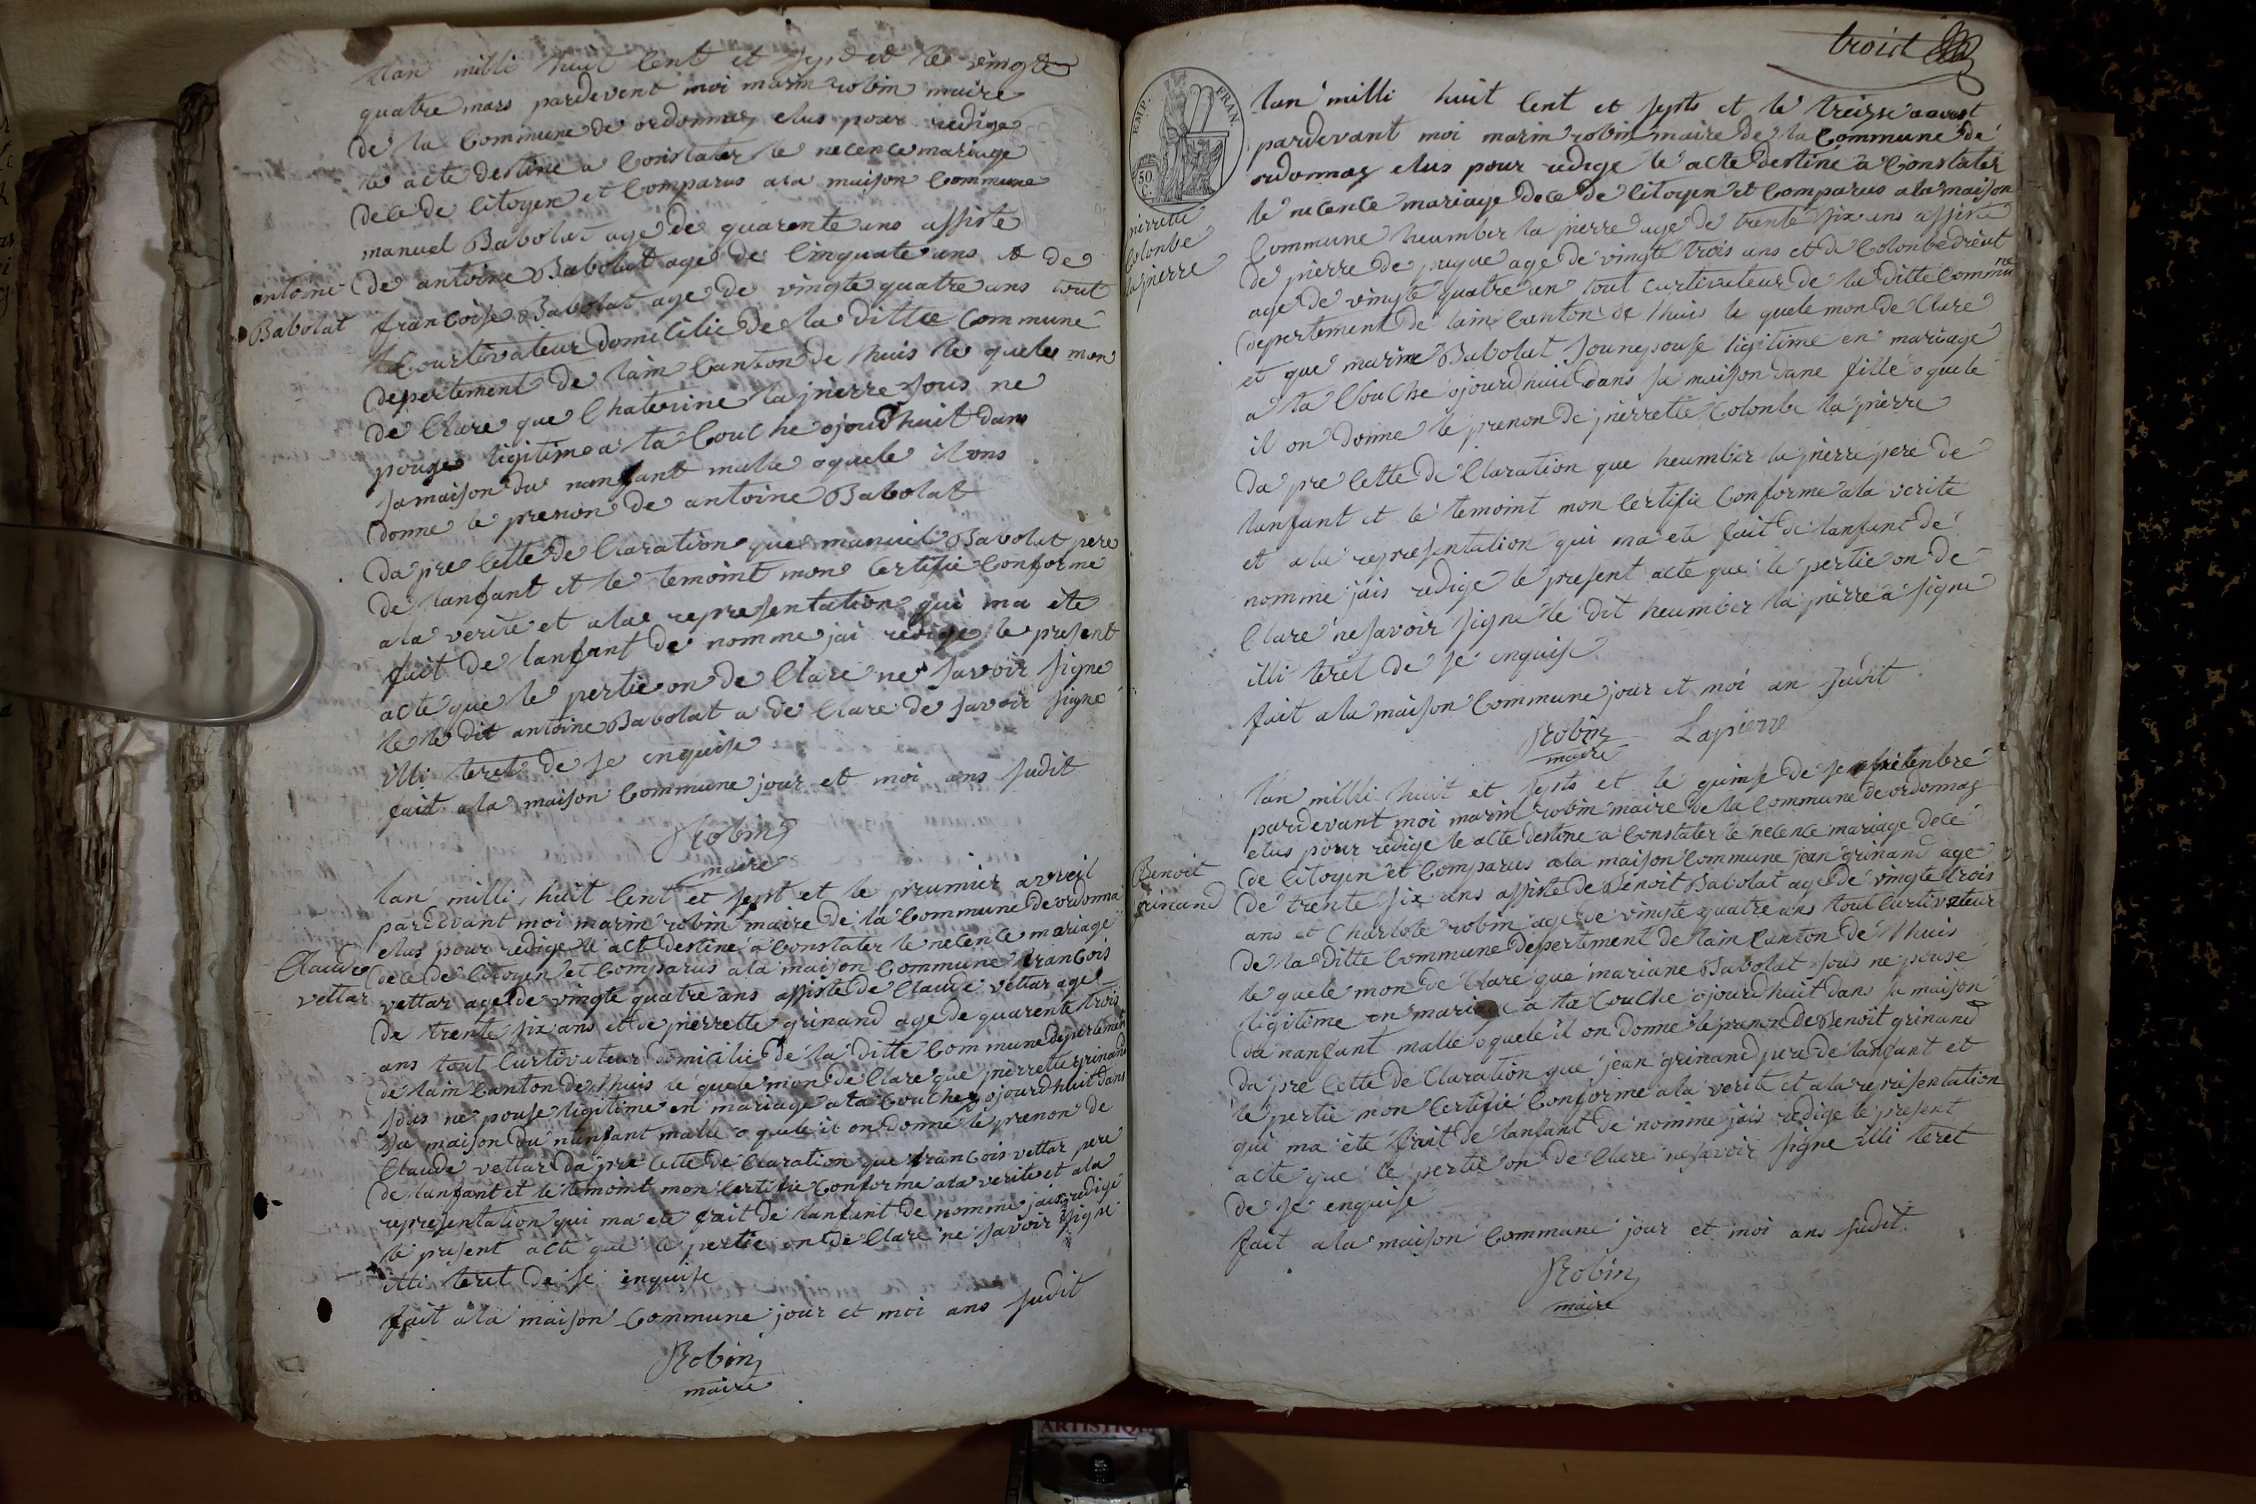 lan milli huit Cent et sept et le vingte
quatre mars pardevent moi marin robin maire
de la Commune de ordonnaz elus pour redige
le acte destine a Constater le necence mariage
dece de Citoyen et Comparus ala maison Commune
manuel Babolat age de quarente ans assiste
antoine
Babolat
de antoine Babolat age de Cinquate ans et de
francoise Babolat age de vingte quatre ans tout
Courtivateur domicilie de la ditte Commune
departement de lain Canton de lhuis le quele mon
de Clare que Chaterine la pierre sous ne
pouse ligitime a ta Couche ojourdhuit dans
sa maison du nanfant malle oquele il ons
donne le prenon de antoine Babolat
da pre Cette de Claration que manuel Babolat pere
de lanfant et le temoint mon Certifie Conforme
ala verite et alae representation qui ma ete
fait de lanfant de nomme jai redige le present
acte que le pertie on de Clare ne savoir signe
le dit antoine Babolat a de Clare de savoir signe
illi teret de se enquise
fait ala maison Commune jour et moi ans sudit
Robin
maire
lan milli huit Cent et sept et le prumier avreil
pardevant moi marin robin maire de la Commune de ordonna
elus pour redige le acte destine a Constater le necence mariage
Claude
vettar
dece de Citoyen et Comparus ala maison Commune francois
vettar age de vingte quatre ans assiste de Claude vettar age
de trente six ans et de pierrette grinand age de quarente trois
ans tout Curtivateur domicilie de la ditte Commune departement
de lain Canton de lhuis le quele mon de Clare que pierrette grinand
sous ne pouse ligitime en mariage a ta Couche ojourdhuit dans
sa maison du nanfant malle oquele il on donne le prenon de
Claude vettar da pre Cette de Claration que francois vettar pere
de lanfant et le temoint mon Certifie Conforme ala verite et ala
representation qui ma ete fait de lanfant de nomme jais redige
le present acte que le pertie on de Clare ne savoir signe
illi teret de se enquise
fait ala maison Commune jour et moi ans sudit
Robin
maire
troist
EMP. FRAN.
50 C.
lan milli huit Cent et septs et le treizse aoust
pardevant moi marin robin maire de la Commune de
ordonnaz elus pour redige le acte destine a Constater
le necence mariage dece de Citoyen et Comparus ala maison
pierrette
Colonbe
la pierre
Commune heumber la pierre age de trente six ans assiste
de pierre de puque age de vingte trois ans et de Colonbe
age de vingte quatre an tout Curtivateur de la ditte Commune
departement de lain Canton de lhuis le quele mon de Clare
et que marine Babolat sounepouse ligitime en mariage
a ta Couche ojourdhuit dans sa maison dane fille oquele
il on donne le prenon de pierrette Colonbe la pierre
da pre Cette de Claration que heumber la pierre pere de
lanfant et le temoint mon Certifie Conforme ala verite
et ala representation qui ma ete fait de lanfant de
nomme jais redige le present acte que le pertie on de
Clare ne savoir signe le dit heumber la pierre a signe
illi teret de se enquise
fait ala maison Commune jour et moi an sudit
Robin Lapierre
maire
lan milli huit et septs et le quinse de
pardevant moi marin robin maire de la Commune de ordonnaz
elus pour redige le acte destine a Constater le necence mariage dece
Benoit
grinand
de Citoyen et Comparus ala maison Commune jean grinand age
de trente six ans assiste de Benoit Babolat age de vingte trois
ans et Charlote robin age de vingte quatre ans tout Curtivateur
de la ditte Commune departement de lain Canton de lhuis
le quele mon de Clare que mariane Babolat sous ne pouse
ligitime en mariage a ta Couche ojourdhuit dans sa maison
da nanfant malle oquele il on donne le prenon de Benoit grinand
da pre Cette de Claration que jean grinand pere de lanfant et
le pertie mon Certifie Conforme ala verite et ala representation
qui ma ete fait de lanfant de nomme jais redige le present
acte que le pertie on de Clare ne savoir signe illi teret
de se enquise
fait ala maison Commune jour et moi ans sudit
Robin
maire
ARTISTIQUE